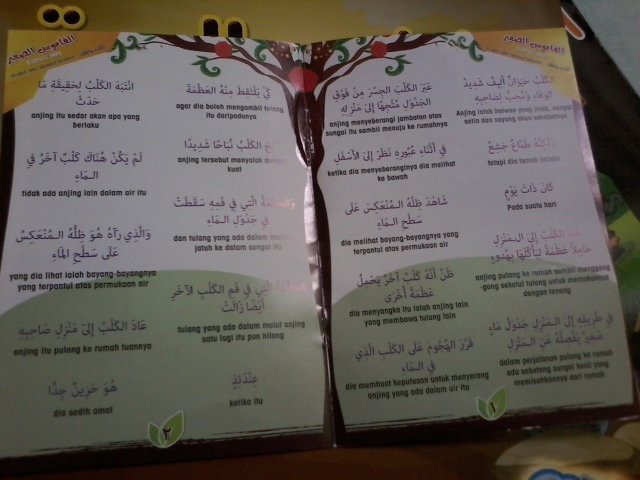 القاموس الصغير
الكَلْبُ حَيَوَانٌ أَلِيفٌ شَدِيدُ
الوَفَاءِ وَمُحِبٌّ لِصَاحِبِهِ
Anjing ialah haiwan yang jinak, sangat
setia dan sayang akan sahabatnya
وَلَكِنَّهُ طَمَّاعٌ جَشِعٌ
tetapi dia tamak
كَانَ ذَاتَ يَوْمٍ
Pada suatu hari
عَادَ الكَلْبُ إِلَى الـمَنْزِلِ
حَامِلاً عَظْمَةً لِيَأْكُلَهَا بِهُدُوءٍ
anjing pulang ke rumah sambil menggong
-gong seketul tulang untuk memakannya
dengan tenang
فِي طَرِيقِهِ إِلَى الـمَنْزِلِ جَدْوَلُ مَاءٍ
صَغِيرٌ يَفْصِلُهُ عَنِ الـمَنْزِلِ
dalam perjalanan pulang ke rumah
ada sebatang sungai kecil yang
memisahkannya dari rumah
١
عَبَرَ الكَلْبُ الجِسْرَ مِنْ فَوْقِ
الجَدْوَلِ مُتَّجِهًا إِلَى مَنْزِلِهِ
anjing menyeberangi jambatan atas
sungai itu sambil menuju ke rumahnya
فِي أَثْنَاءِ عُبُورِهِ نَظَرَ إِلَى الأَسْفَلِ
ketika dia menyeberanginya dia melihat
ke bawah
شَاهَدَ ظِلَّهُ الـمُنْعَكِسَ عَلَى
سَطْحِ الـمَاءِ
dia melihat bayang-bayangnya yang
terpantul atas permukaan air
ظَنَّ أَنَّهُ كَلْبٌ آخَرُ يَحْمِلُ
عَظْمَةً أُخْرَى
dia menyangka itu ialah anjing lain
yang membawa tulang lain
قَرَّرَ الهُجُومَ عَلَى الكَلْبِ الَّذِي
فِي الـمَاءِ
dia membuat keputusan untuk menyerang
anjing yang ada dalam air itu
القاموس الصغير
كَيْ يَلْتَقِطَ مِنْهُ العَظْمَةَ
agar dia boleh mengambil tulang
itu daripadanya
الكَلْبُ نُبَاحًا شَدِيدًا
anjing tersebut menyalak dengan
kuat
الَّتِي فِي فَمِهِ سَقَطَتْ
فِي جَدْوَلِ الـمَاءِ
dan tulang yang ada dalam
jatuh ke dalam sungai itu
الَّتِي فِي فَمِ الكَلْبِ الآخَرِ
أَيْضًا زَالَتْ
tulang yang ada dalam mulut anjing
satu lagi itu pun hilang
عِنْدَئِذٍ
ketika itu
انْتَبَهَ الكَلْبُ لِحَقِيقَةِ مَا
حَدَثَ
anjing itu sedar akan apa yang
berlaku
لَمْ يَكُنْ هُنَاكَ كَلْبٌ آخَرُ فِي
الـمَاءِ
tidak ada anjing lain dalam air itu
وَالَّذِي رَآهُ هُوَ ظِلُّهُ الـمُنْعَكِسُ
عَلَى سَطْحِ الـمَاءِ
yang dia lihat ialah bayang-bayangnya
yang terpantul atas permukaan air
عَادَ الكَلْبُ إِلَى مَنْزِلِ صَاحِبِهِ
anjing itu pulang ke rumah tuannya
هُوَ حَزِينٌ جِدًّا
dia sedih amat
٢